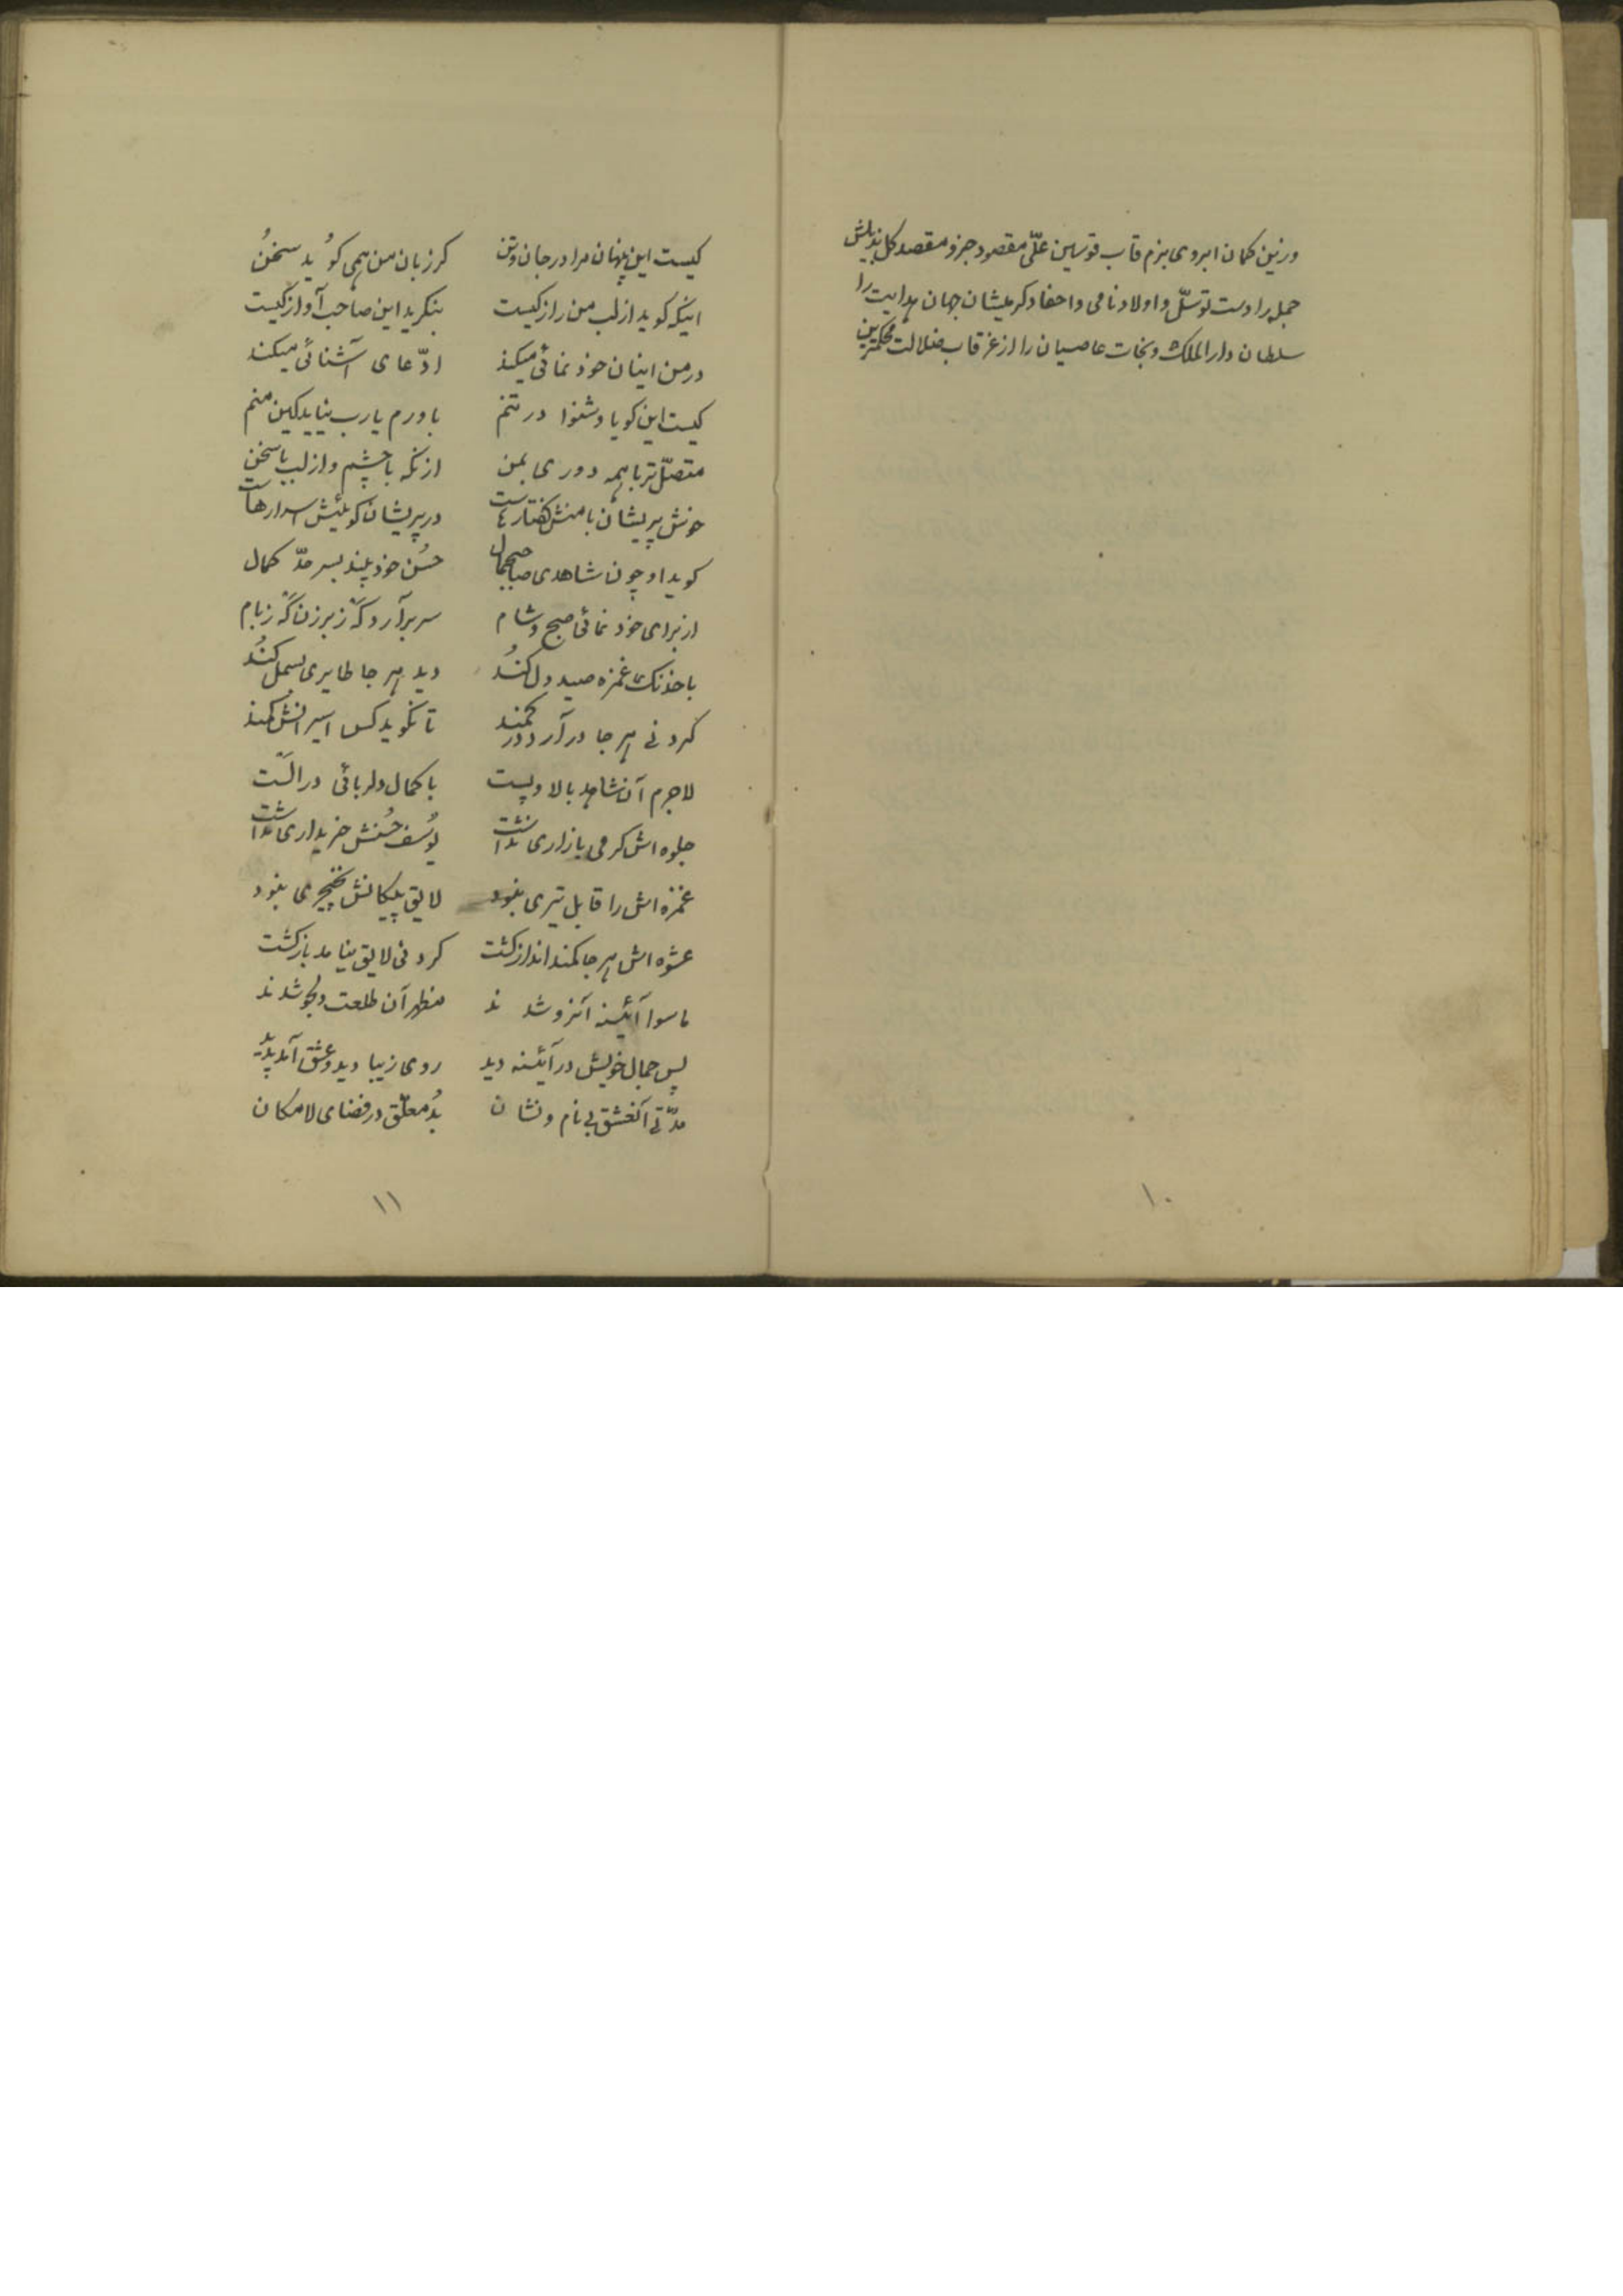 وزنین کمان ابروی بزم قاب قوسین علّی مقصود جزو مقصد کل بذیلش
جمله را دست توسّل و اولاد نامی و احفاد کرمیشان جهان هدایت را
سلطان دارالملک و نجات عاصیان را از غرقاب ضلالت محکمترین
۱۰
کیست این پنهان مرا در جان و تن کز زبان من همی کوُید سخنُ
اینکه کوید از لب من راز کیست بنکرید این صاحب آواز کیست
در من اینسان خود نمائی میکند ادّعای آشنائی میکند
کیست این کویا و شنوا در تنم باورم یارب نیاید کین منم
متصّل تر با همه دوری بمن از نکه با چشم و از لب با سخن
خوش پریشان با منش کفتارهاست در پریشان کوئیش اسرارهاست
کوید او چون شاهدی صاحبجمال حسُن خود بیند بسر حدّ کمال
از برای خود نمائی صبح و شام سر برآرد که ز برزن که ز بام
با خدنک غمزه صید دل کنُد دید هر جا طایری بسمل کنُد
کردنی هر جا در آرد در کمند تا نکوید کس اسیرانش کمند
لاجرم آن شاهد بالا و پست با کمال دلربائی در السَت
جلوه اش کرمی بازاری نداشت یوُسف حُسنش خریداری نداشت
غمزه اش را قابل تیری نبود لایق پیکانش نخچیری نبود
عشوه اش هر جا کمند انداز کشت کردنی لایق نیامد باز کشت
ماسوا آئینه آنرو شدند مظهر آن طلعت دلجو شدند
پس جمال خویش در آئینه دید روی زیبا دید و عشق آمد پدید
مدّتی آنعشق بی نام و نشان بُد معلّق در فضای لامکان
۱۱